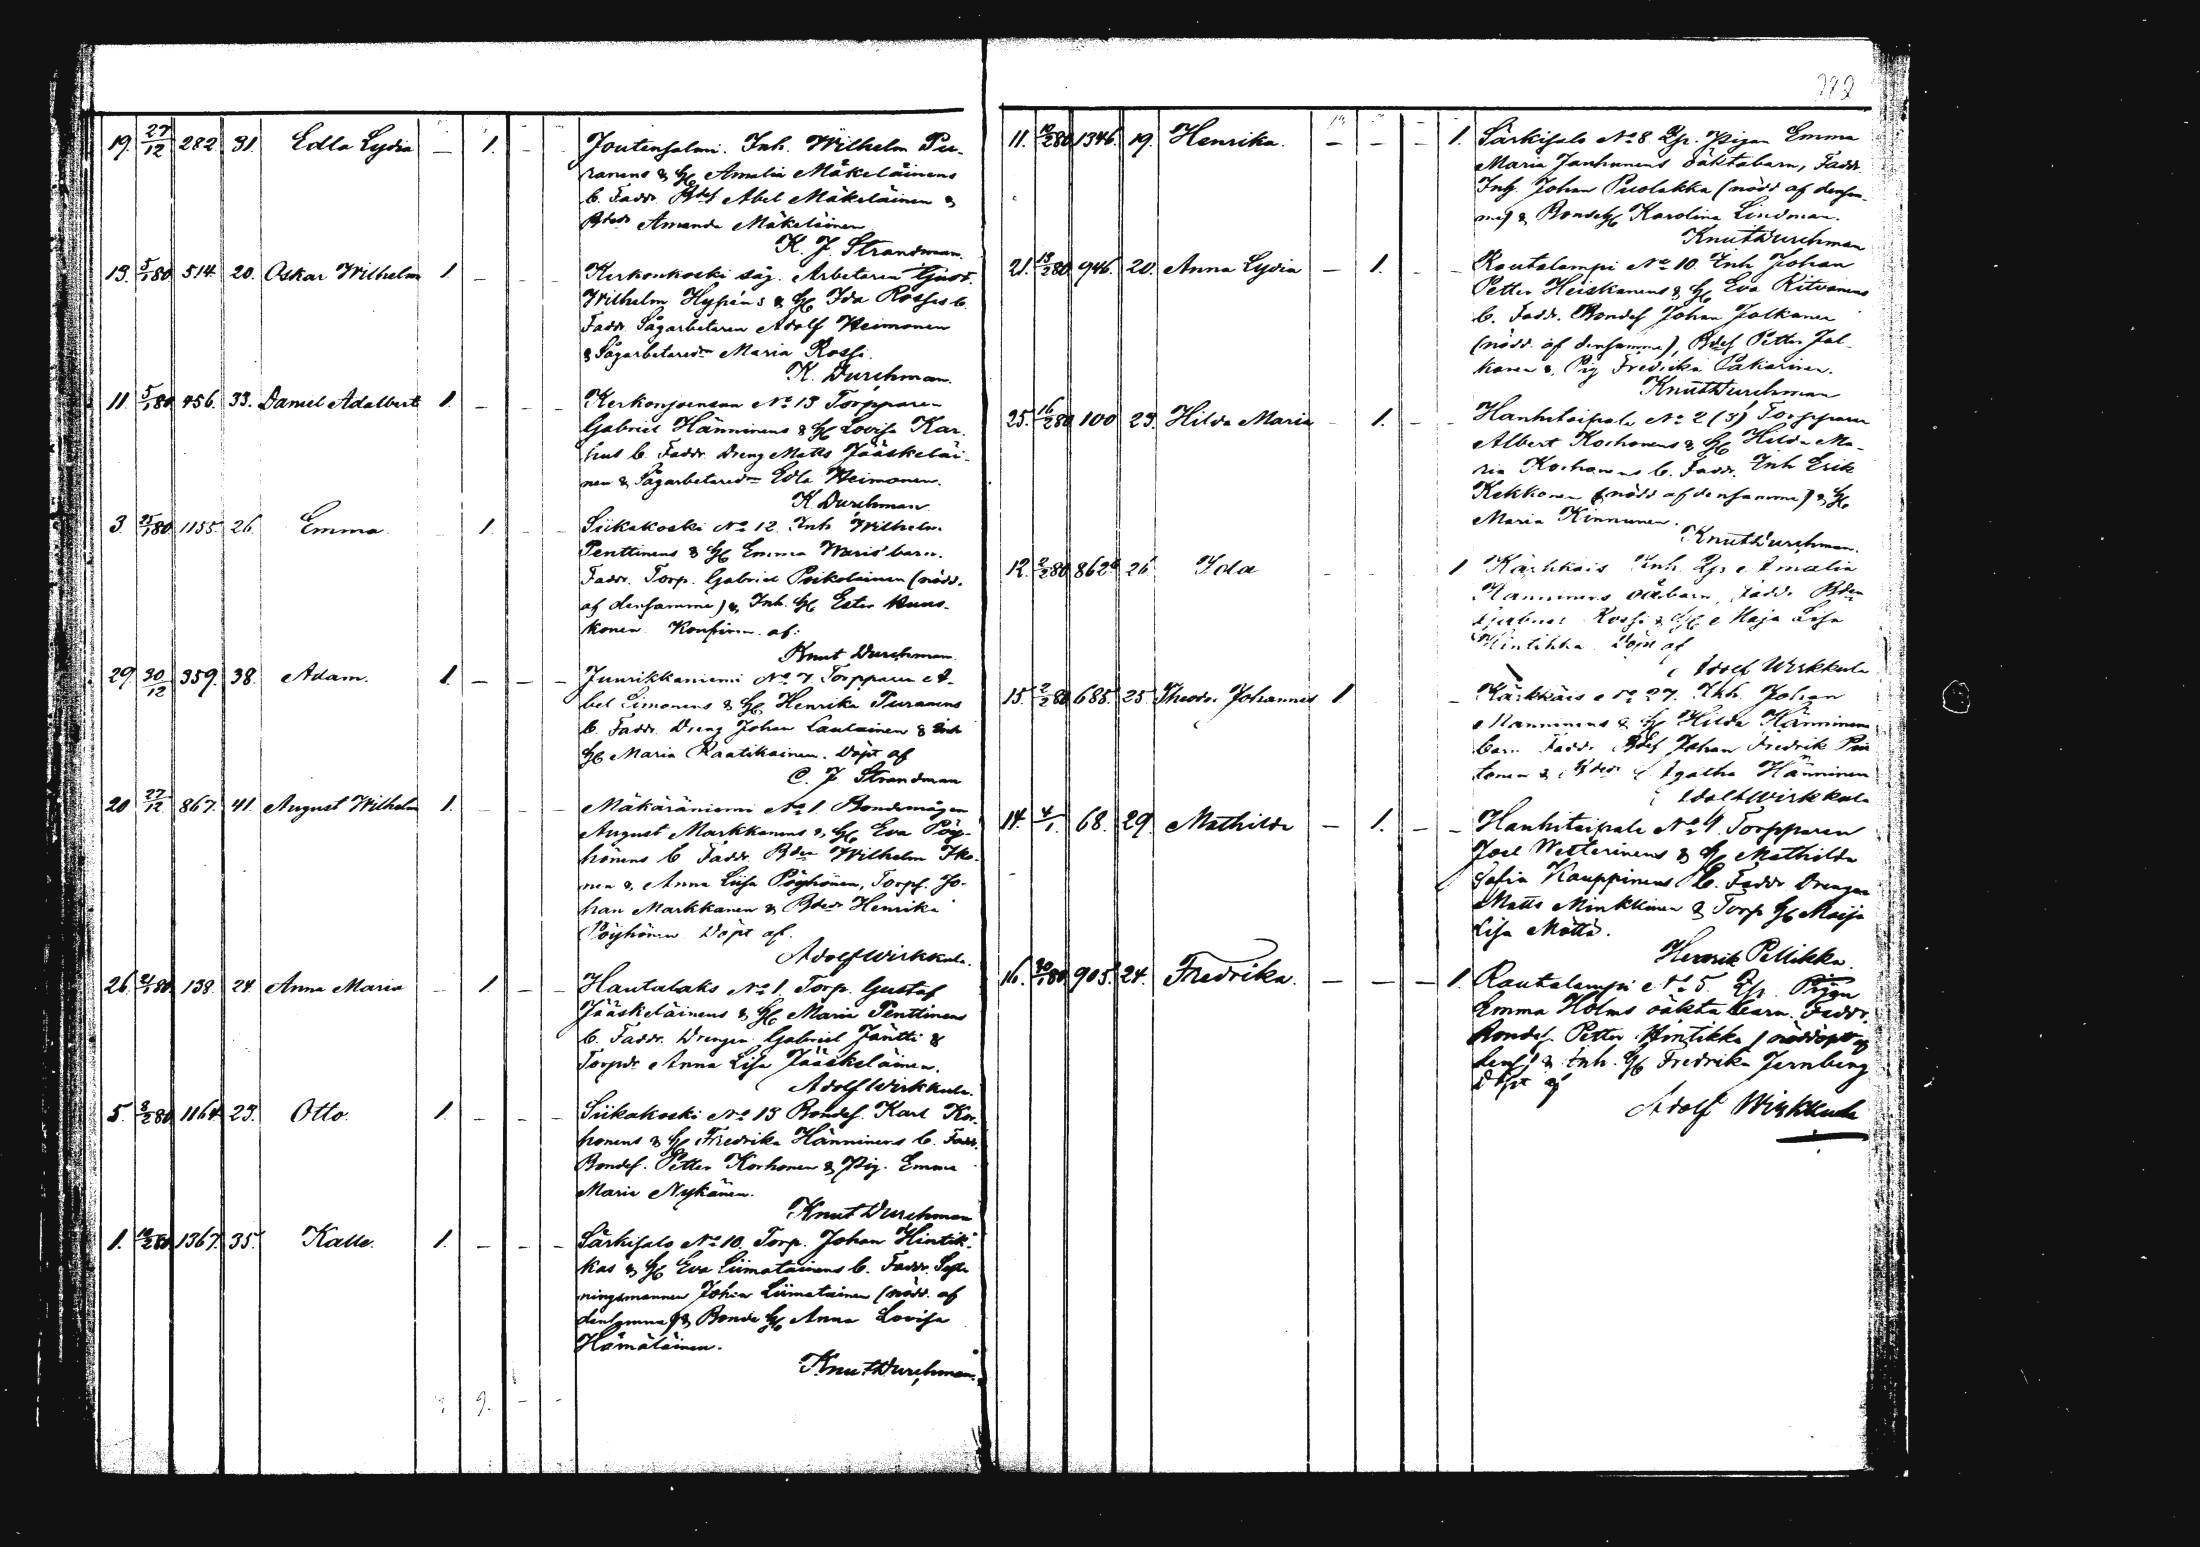 19. 27/12 282. 31. Edla Lydia — 1. Joutensalmi. Inh. Wilhelm Pu-
ranens & H. Amalia Mäkeläinens
b. Faddr. Bdes Abel Mäkeläinen &
Bdedr Amanda Mäkeläinen
K. J. Strandman.
13. 5/1 80 514. 20. Oskar Wilhelm 1. — — — Kerkonkoski såg. Arbetaren Gust.
Wilhelm Hypéns & H. Ida Rossis b.
Faddr. Sågarbetaren Adolf Heimonen
& Sågarbetaredr Maria Rossi.
K. Durchman.
11. 5/1 80 456. 33. Daniel Adalbert 1. — — — Kerkonjoensuu No 13 Torpparen
Gabriel Hänninens & H. Lovisa Kar-
hus b. Faddr. Dreng Matts Jääskeläi-
nen & Sågarbetaredr Edla Heimonen.
K. Durchman
3. 25/1 80 1155. 26. Emma 1. — — Siikakoski No 12. Inh Wilhelm
Penttinens & H. Emma Waris' barn.
Faddr. Torp. Gabriel Poikolainen (nödd.
af densamme) & Inh. H. Ester
konen Konfirm. af:
Knut Durchman.
29. 30/12 359. 38. Adam. 1. — — — Juurikkaniemi No 7 Torpparen A-
bel Simonens & H. Henrika Puranens
b. Faddr. Dreng Johan Laulainen & Inh
H. Maria Raatikainen. Döpt af
C. J Strandman
20 27/12 867. 41. August Wilhelm 1. — — — Mäkäräniemi No 1. Bondemågen
August Markkanens & H. Eva Pöy-
hönens b Faddr. Bden Wilhelm Iko-
nen & Anna Lisa Pöyhönen, Torps. Jo-
han Markkanen & Bdedr Henrika
Pöyhönen Döpt af.
Adolf Wirkkula.
26. 138. 24. Anna Maria — 1. — — Hautalaks No 1. Torp. Gustaf
Jääskeläinens & H. Maria Penttinens
b. Faddr. Drengen Gabriel Jäntti &
Torpdr Anna Lisa Jääskeläinen.
Adolf Wirkkula.
5. 8/2 80 1164. 23. Otto. 1. — — — Siikakoski No 13 Bondes. Karl Kor-
honens & H. Fredrika Hänninens b. Faddr.
Bondes. Petter Korhonen & Pig. Emma
Maria Nykänen.
Knut Durchman
1. 1367. 35. Kalle. 1. — — — Särkisalo No 10. Torp. Johan Hintik-
kas & H. Eva Liimatainens b. Faddr.
ningsmannen Johan Liimatainen (nödd. af
densamma) & Bonde H. Anna Lovisa
Hämäläinen.
Knut Durchman.
9. — —
11. 1346. 19. Henrika. — — — 1. Särkisalo No 8. Lp. Pigan Emma
Maria Janhunens oäktabarn, Faddr.
Inh. Johan Puolakka (nödd af densam-
me) & Bonde H. Karolina Lindman.
Knut Durchman
21. 13/2 80 946. 20. Anna Lydia — 1. — — Rautalampi No 10. Inh Johan
Petter Heiskanens & H. Eva Ritvanens
b. Faddr. Bondes Johan Jalkanen
(nödd. af densamme), Bdes Petter Jal-
kanen & Pig Fredrika Pakarinen.
Knut Durchman
25. 16/2 80 100 23. Hilda Maria — 1. — — Hanhitaipale No 2 (3) Torpparen
Albert Korhonens & H. Hilda Ma-
ria Korhonens b. Faddr. Inh Erik
Kekkonen (nödd af densamme) & H.
Maria Kinnunen.
Knut Durchman.
12. 2/2 80 862 26. Ida — — 1 Kärkkäis Inh. Lp Amalia
Manninens oä. barn, Faddr. Bden
Rossi & H. Maja Lisa
Hintikka Döpt af
Adolf Wirkkula
15. 2/2 80 685. 25. Theodor Johannes 1. — Kärkkäis No 27. Inh. Johan
Manninens & H. Hilda Hänninens
barn Faddr. Bdes Johan Fredrik
tonen & Bdedr Agatha Hänninen
Adolf Wirkkula
14. 4/1. 68. 29. Mathilda — 1. — — Hanhitaipale No 4. Torpparen
Joel Wetterinens & H. Mathilda
Sofia Kauppinens b. Faddr Drengen
Matts Minkkinen & Torp H. Maija
Lisa Mättö.
Henrik Pellikka.
16. 905. 24. Fredrika. — — — 1. Rautalampi No 5. Lp. Pigan
Emma Holms oäkta barn. Faddr.
Bondes. Petter Hintikka (nöddöpt af
dens) & Inh. H. Fredrika Jernberg
Döpt af
Adolf Wirkkula